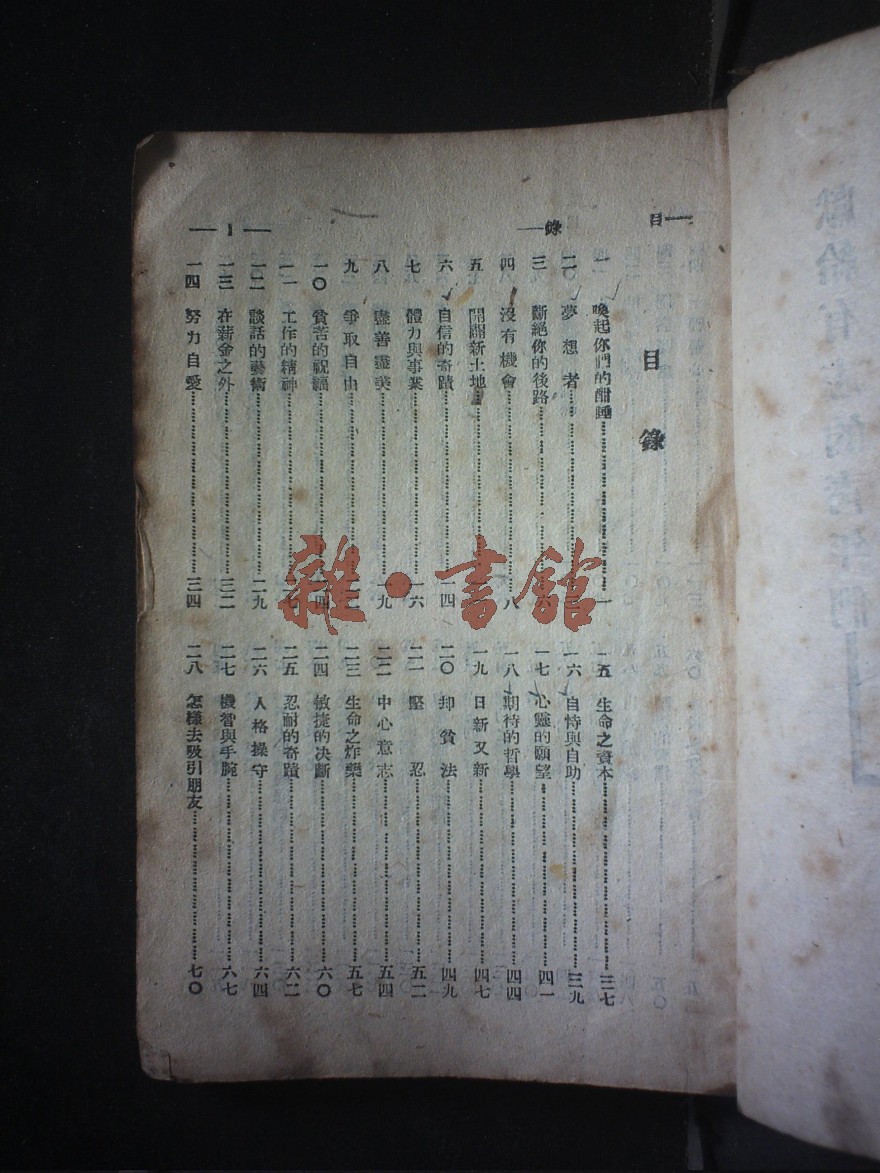 目
錄
1
目錄
一 喚起你們的酣睡 一
二 夢想者
三 斷絕你的後路
四 沒有機會 八
五 開闢新土地
六 自信的奇蹟 一四
七 體力與事業 一六
八 盡善盡美 一九
九 爭取自由
一〇 貧苦的祝福
一一 工作的精神
一二 談話的藝術 二九
一三 在薪金之外 三二
一四 努力自愛 三四
一五 生命之資本 三七
一六 自恃與自助 三九
一七 心靈的願望 四一
一八 期待的哲學 四四
一九 日新又新 四七
二〇 却貧法 四九
二一 堅忍 五二
二二 中心意志 五四
二三 生命之炸藥 五七
二四 敏捷的決斷 六〇
二五 忍耐的奇蹟 六二
二六 人格操守 六四
二七 機智與手腕 六七
二八 怎樣去吸引朋友 七〇
雜·書館